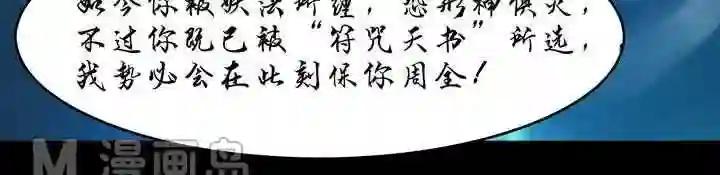 如今你被妖法所缠，恐形神俱灭，
不过你既已被“符咒天书”所选，
我势必会在此刻保你周全！
M 漫画岛